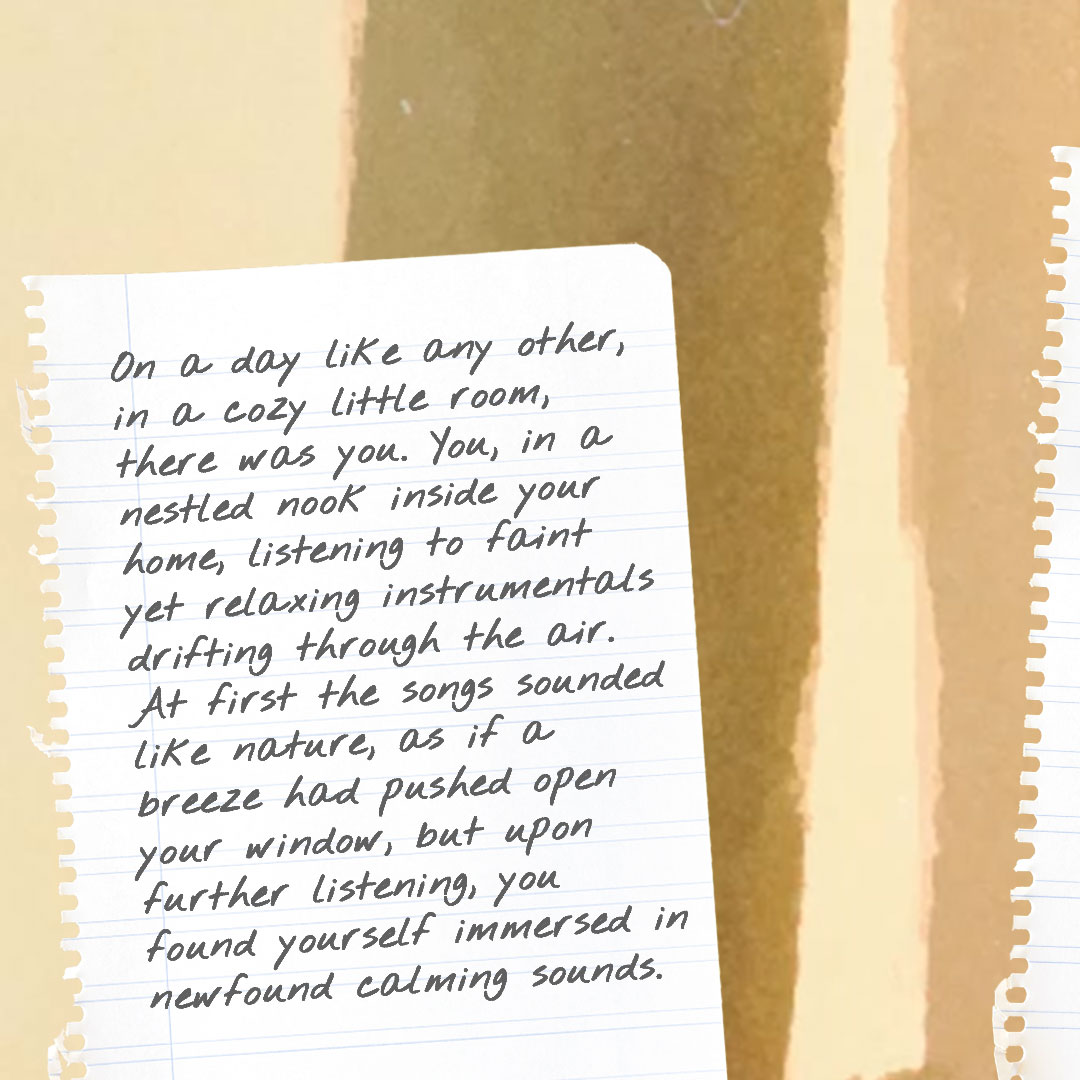 On a day like any other,
in a cozy little room,
there was you. You, in a
nestled nook inside your
home, listening to faint
yet relaxing instrumentals
drifting through the air.
At first the songs sounded
like nature, as if a
breeze had pushed open
your window, but upon
further listening, you
found yourself immersed in
newfound calming sounds.